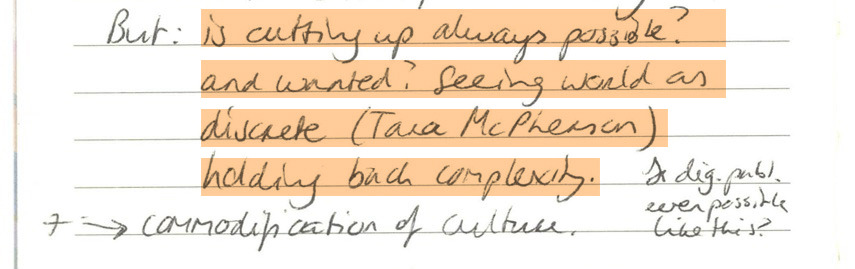 But: is cutting up always possible?
and wanted? Seeing world as
discrete (Tara McPherson)
holding back complexity.
Is dig. publ.
even possible
like this?
+ → commodification of culture.